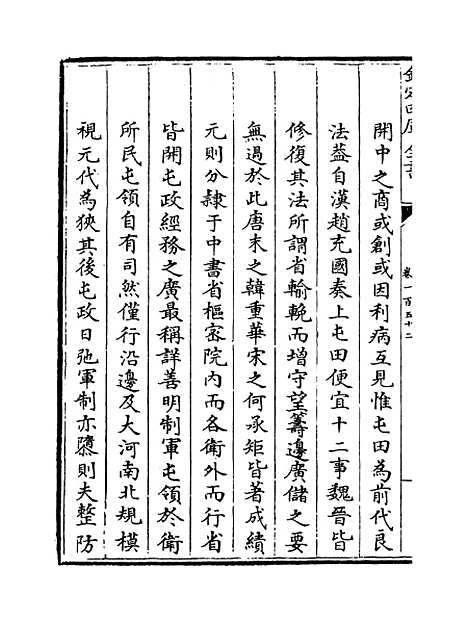 欽定四庫全書
卷一百五十二
開中之商或創或因利病互見惟屯田為前代良
法葢自漢趙充國奏上屯田便宜十二事魏晉皆
修復其法所謂省輸輓而增守望籌邊廣儲之要
無過於此唐末之韓重華宋之何承矩皆著成績
元則分隷于中書省樞密院内而各衛外而行省
皆開屯政經務之廣最稱詳善明制軍屯領於衛
所民屯領自有司然僅行沿邊及大河南北規模
視元代為狹其後屯政日弛軍制亦隳則夫整防